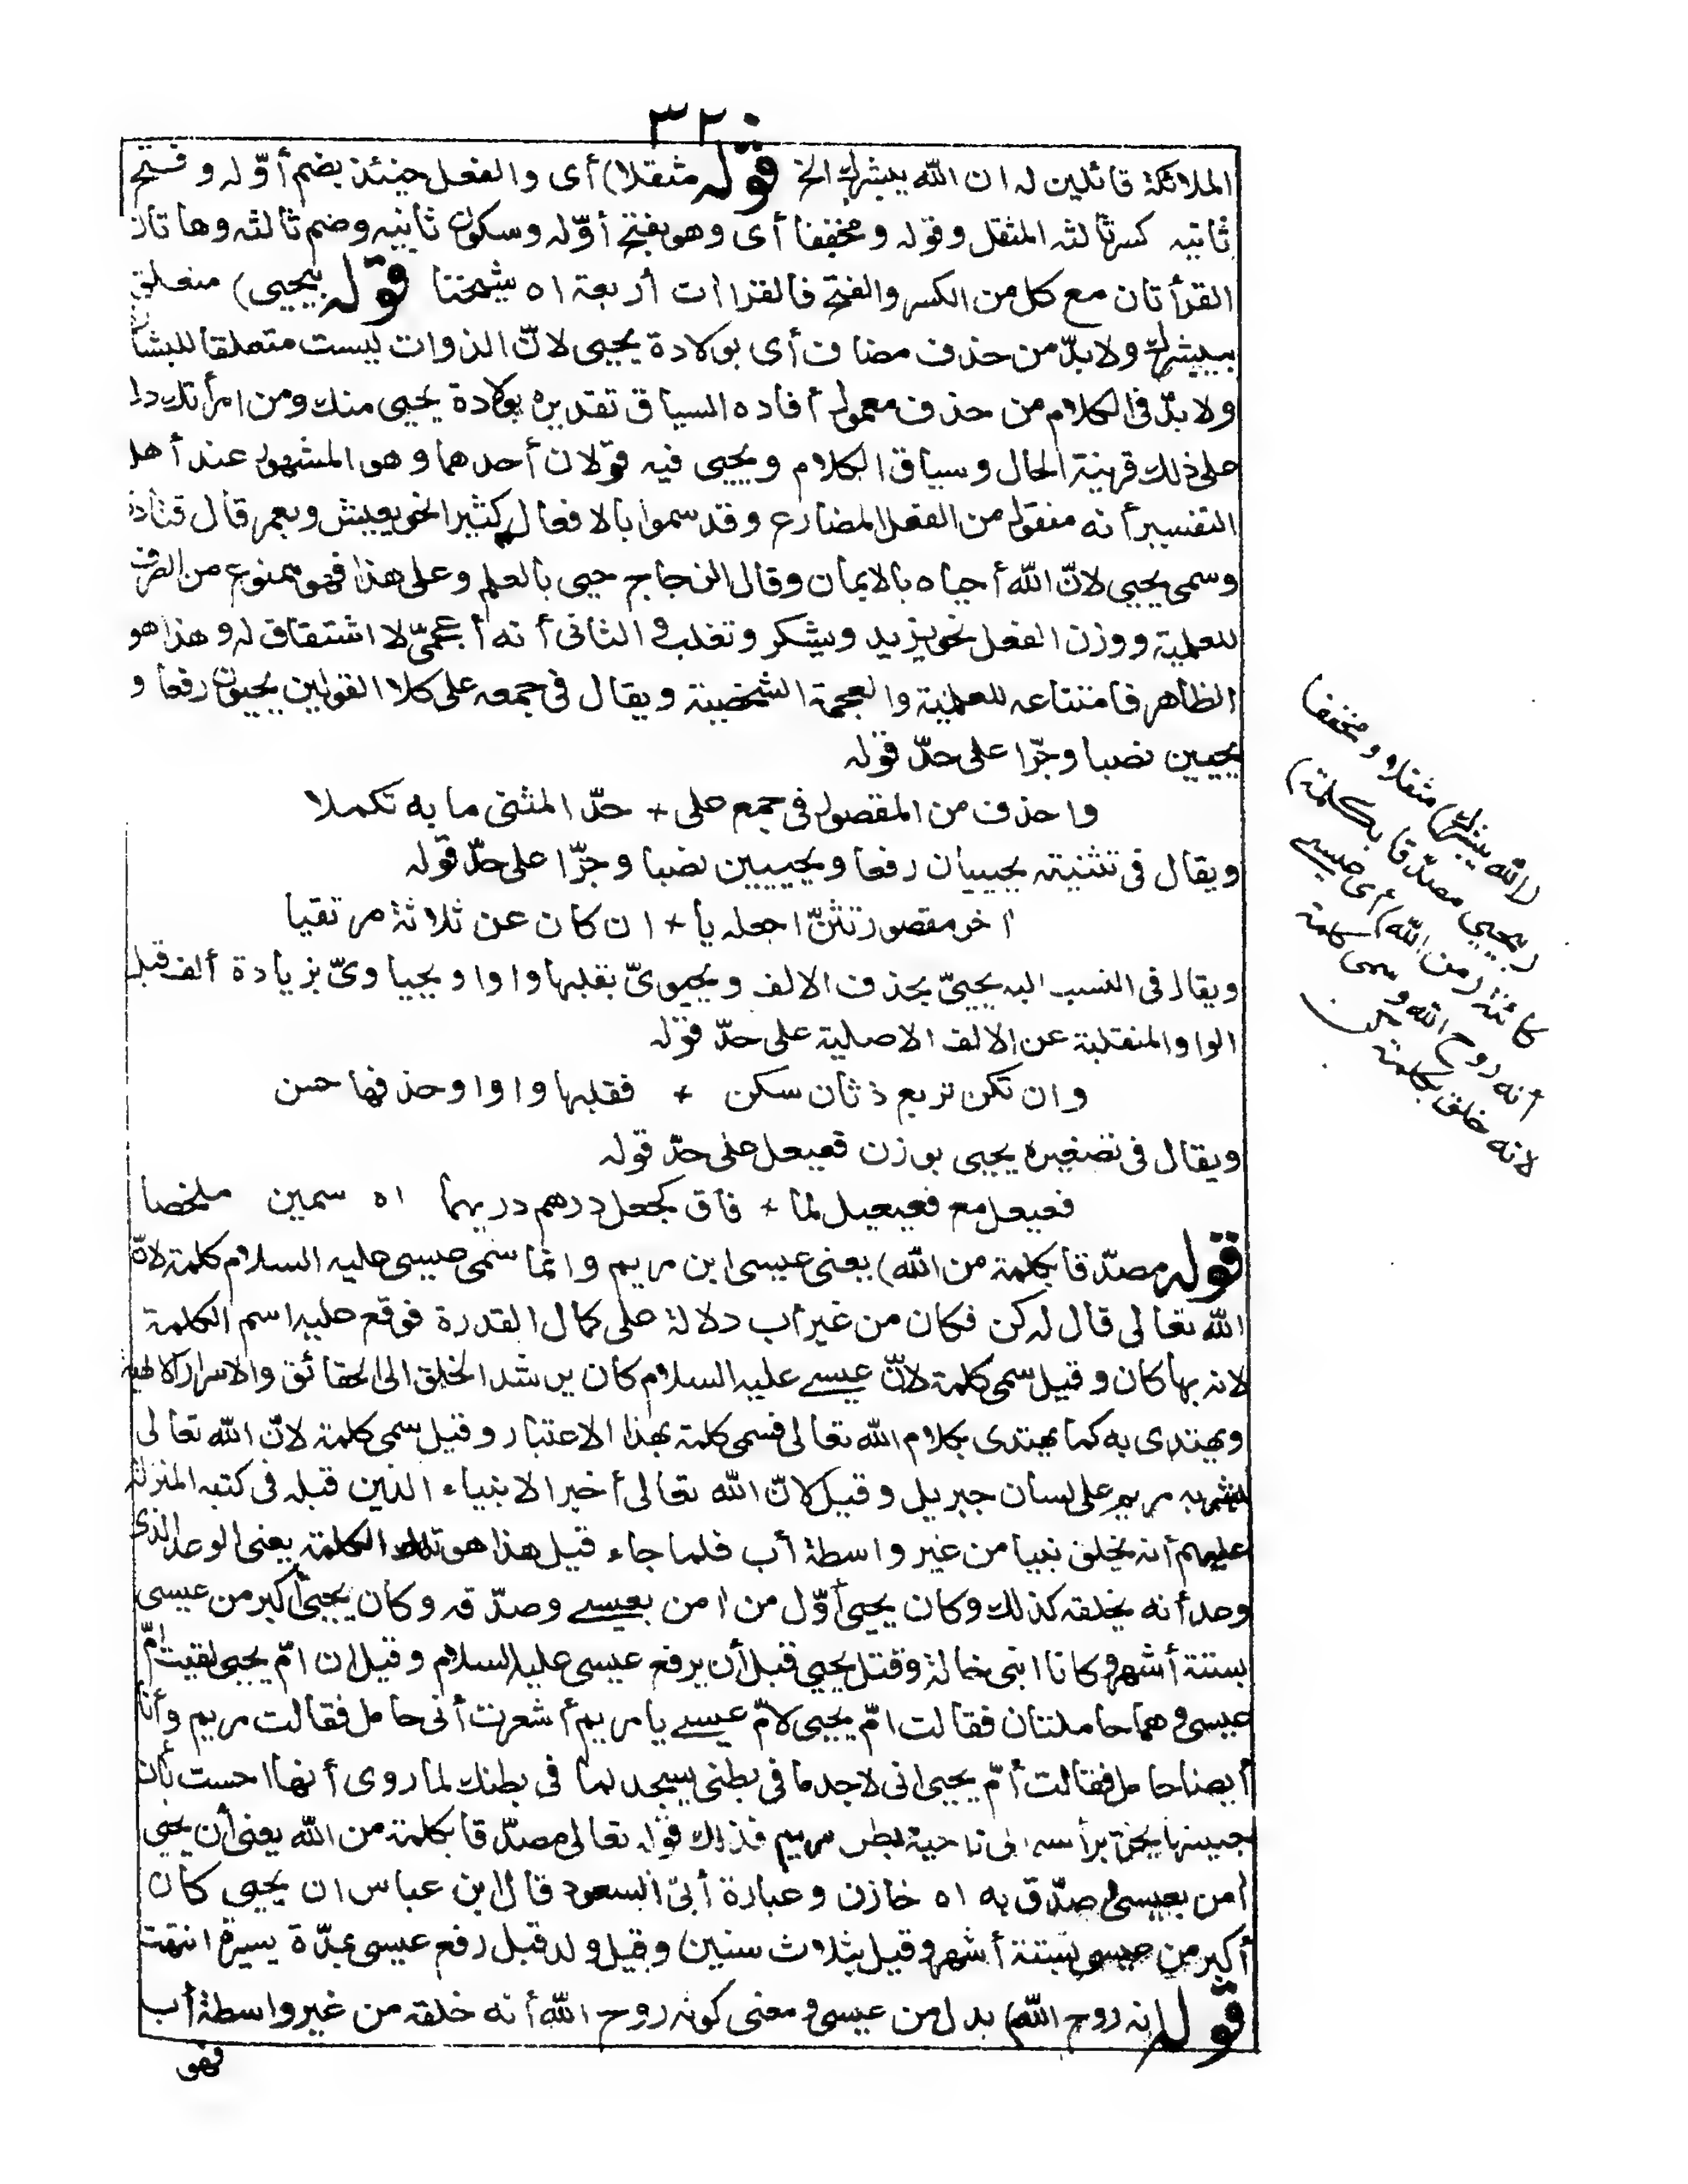 ٣٢٠
الملائكة قائلين له ان الله يبشرك الخ قوله مثقلا) أى والفعل حينئذ بضم أوّله وفتح
ثانيه كسر ثالثه المثقل وقوله ومخففا أى وهو بفتح أوّله وسكون ثانيه وضم ثالثه وهاتان
القرأتان مع كل من الكسر والفتح فالقراات أربعة اه شيخنا قوله بيحيى) متعلق
بيبشرك ولابدّ من حذف مضاف أى بولادة يحيى لانّ الذوات ليست متعلقا للبشارة
ولابدّ فى الكلام من حذف معمول أفاده السياق تقديره بولادة يحيى منك ومن امرأتك دل
على ذلك قرينة الحال وسياق الكلام ويحيى فيه قولان أحدهما وهو المشهور عند أهل
التفسير أنه منقول من الفعل المضارع وقد سموا بالافعال كثيرا نحو يعيش ويعمر قال قتادة
وسمى يحيى لانّ الله أحياه بالايمان وقال الزجاج حيى بالعلم وعلى هذا فهو ممنوع من الصرف
للعلمية ووزن الفعل نحو يزيد ويشكر وتغلب والثانى أنه أعجمىّ لا اشتقاق له وهذا هو
الظاهر فامتناعه للعلمية والعجمة الشخصية ويقال فى جمعه على كلا القولين يحيون رفعا و
يحيين نصبا وجرّا على حدّ قوله
واحذف من المقصور فى جمع على + حدّ المثنى ما به تكملا
ويقال فى تثنيته يحييان رفعا ويحييين نصبا وجرّا على حدّ قوله
اخر مقصور تثنّ اجعله يا + ان كان عن ثلاثة مرتقيا
ويقال فى النسب اليه يحيىّ بحذف الالف ويحيوىّ بقلبها واوا ويحياوىّ بزيادة ألف قبل
الواو المنقلبة عن الالف الاصلية على حدّ قوله
وان تكن تربع ذ ثان سكن + فقلبها واوا وحذفها حسن
ويقال فى تصغيره يحيى بوزن فعيعل على حدّ قوله
فعيعل مع فعيعيل لما + فاق كجعل درهم دريهما اه سمين ملخصا
قوله مصدّقا بكلمة من الله) يعنى عيسى ابن مريم وانما سمى عيسى عليه السلام كلمة لانّ
الله تعالى قال له كن فكان من غير أب دلالة على كمال القدرة فوقع عليه اسم الكلمة
لانه بها كان وقيل سمى كلمة لانّ عيسى عليه السلام كان يرشد الخلق الى الحقائق والاسرار الالهية
ويهتدى به كما يهتدى بكلام الله تعالى فسمى كلمة بهذا الاعتبار وقيل سمى كلمة لانّ الله تعالى
بشر به مريم على لسان جبريل وقيل لانّ الله تعالى أخبر الانبياء الذين قبله فى كتبه المنزلة
عليهم أنه يخلق نبيا من غير واسطة أب فلما جاء قيل هذا هو تلك الكلمة يعنى الوعد الذى
وعد أنه يخلقه كذلك وكان يحيى أوّل من امن بعيسى وصدّقه وكان يحيى أكبر من عيسى
بستة أشهر وكانا ابنى خالة وقتل يحيى قبل أن يرفع عيسى عليه السلام وقيل ان امّ يحيى لقيت امّ
عيسى وهما حاملتان فقالت امّ يحيى لامّ عيسى يا مريم أشعرت أنى حامل فقالت مريم وأنا
أيضا حامل فقالت أمّ يحيى انى لاجد ما فى بطنى يسجد لما فى بطنك لما روى أنها احست بأن
جنينها يخرّ برأسه الى ناحية بطن مريم فذلك قوله تعالى مصدّقا بكلمة من الله يعنى أن يحيى
امن بعيسى وصدّق به اه خازن وعبارة أبى السعود قال ابن عباس ان يحيى كان
أكبر من عيسى بستة أشهر وقيل بثلاث سنين وقيل ولد قبل رفع عيسى بمدّة يسيرة انتهت
قوله انه روح الله) بدل من عيسى ومعنى كونه روح الله أنه خلقه من غير واسطة أب
فهو
(الله يبشرك) مثقلا ومخففا
(بيحيى مصدّقا بكلمة)
كائنة (من الله) أى عيسى
أنه روح الله وسمى كلمة
لانه خلق بكلمة كن